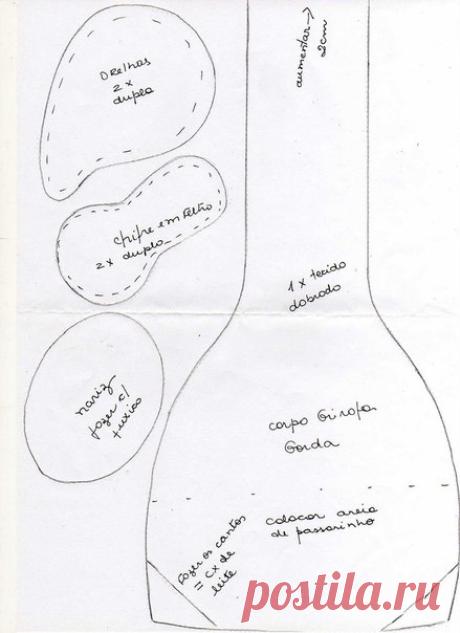 Orelhas
2 x
dupla
aumentar →
2cm
chifre em feltro
2 x dupla
1 x tecido
dobrado
nariz
fazer c/
fuxico
corpo Girafa
Gorda
colocar areia
de passarinho
fazer os cantos
= cx de
leite
postila.ru